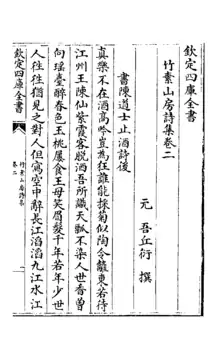 欽定四庫全書
竹素山房詩集卷二
元 吾丘衍 撰
書陳道士止酒詩後
真樂不在酒高吟豈為狂誰能採菊似陶令籬東若待
江州王陳仙紫霞客脫酒吾所識天瓢不染人世香曾
向瑶臺醉春色玉桃屢食王母笑眉髮千年若年少世
人往往猶見之對人但駕空中辭長江滔滔九江水江
欽定四庫全書
竹素山房詩集
卷二
一